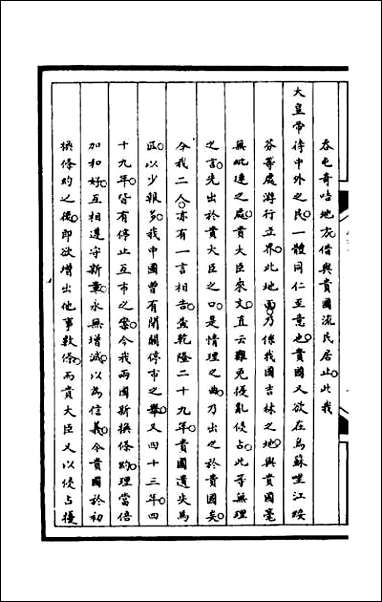 吞屯奇咭地方借與貴國流民居止此我
大皇帝待中外之民一體同仁至意也貴國又欲在烏蘇哩江綏
芬等處游行立界此地面乃係我國吉林之地與貴國毫
無毗連之處貴大臣來文直云難免侵亂侵占此等無理
之言先出於貴大臣之口是情理之曲乃出之於貴國矣
今我二人亦有一言相告盖乾隆二十九年貴國遺失馬
匹以少報多我中國曾有閉關停市之舉又四十三年四
十九年皆有停止互市之案今我兩國新換條約理當倍
加和好互相遵守斯章永無增減以為信義今貴國於初
換條約之後即欲增出他事數條而貴大臣又以侵占擾